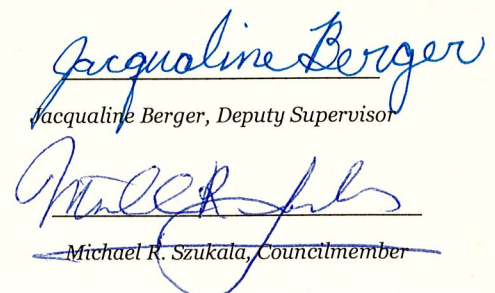 Jacqualine Berger
Jacqualine Berger, Deputy Supervisor
Michael R. Szukala, Councilmember